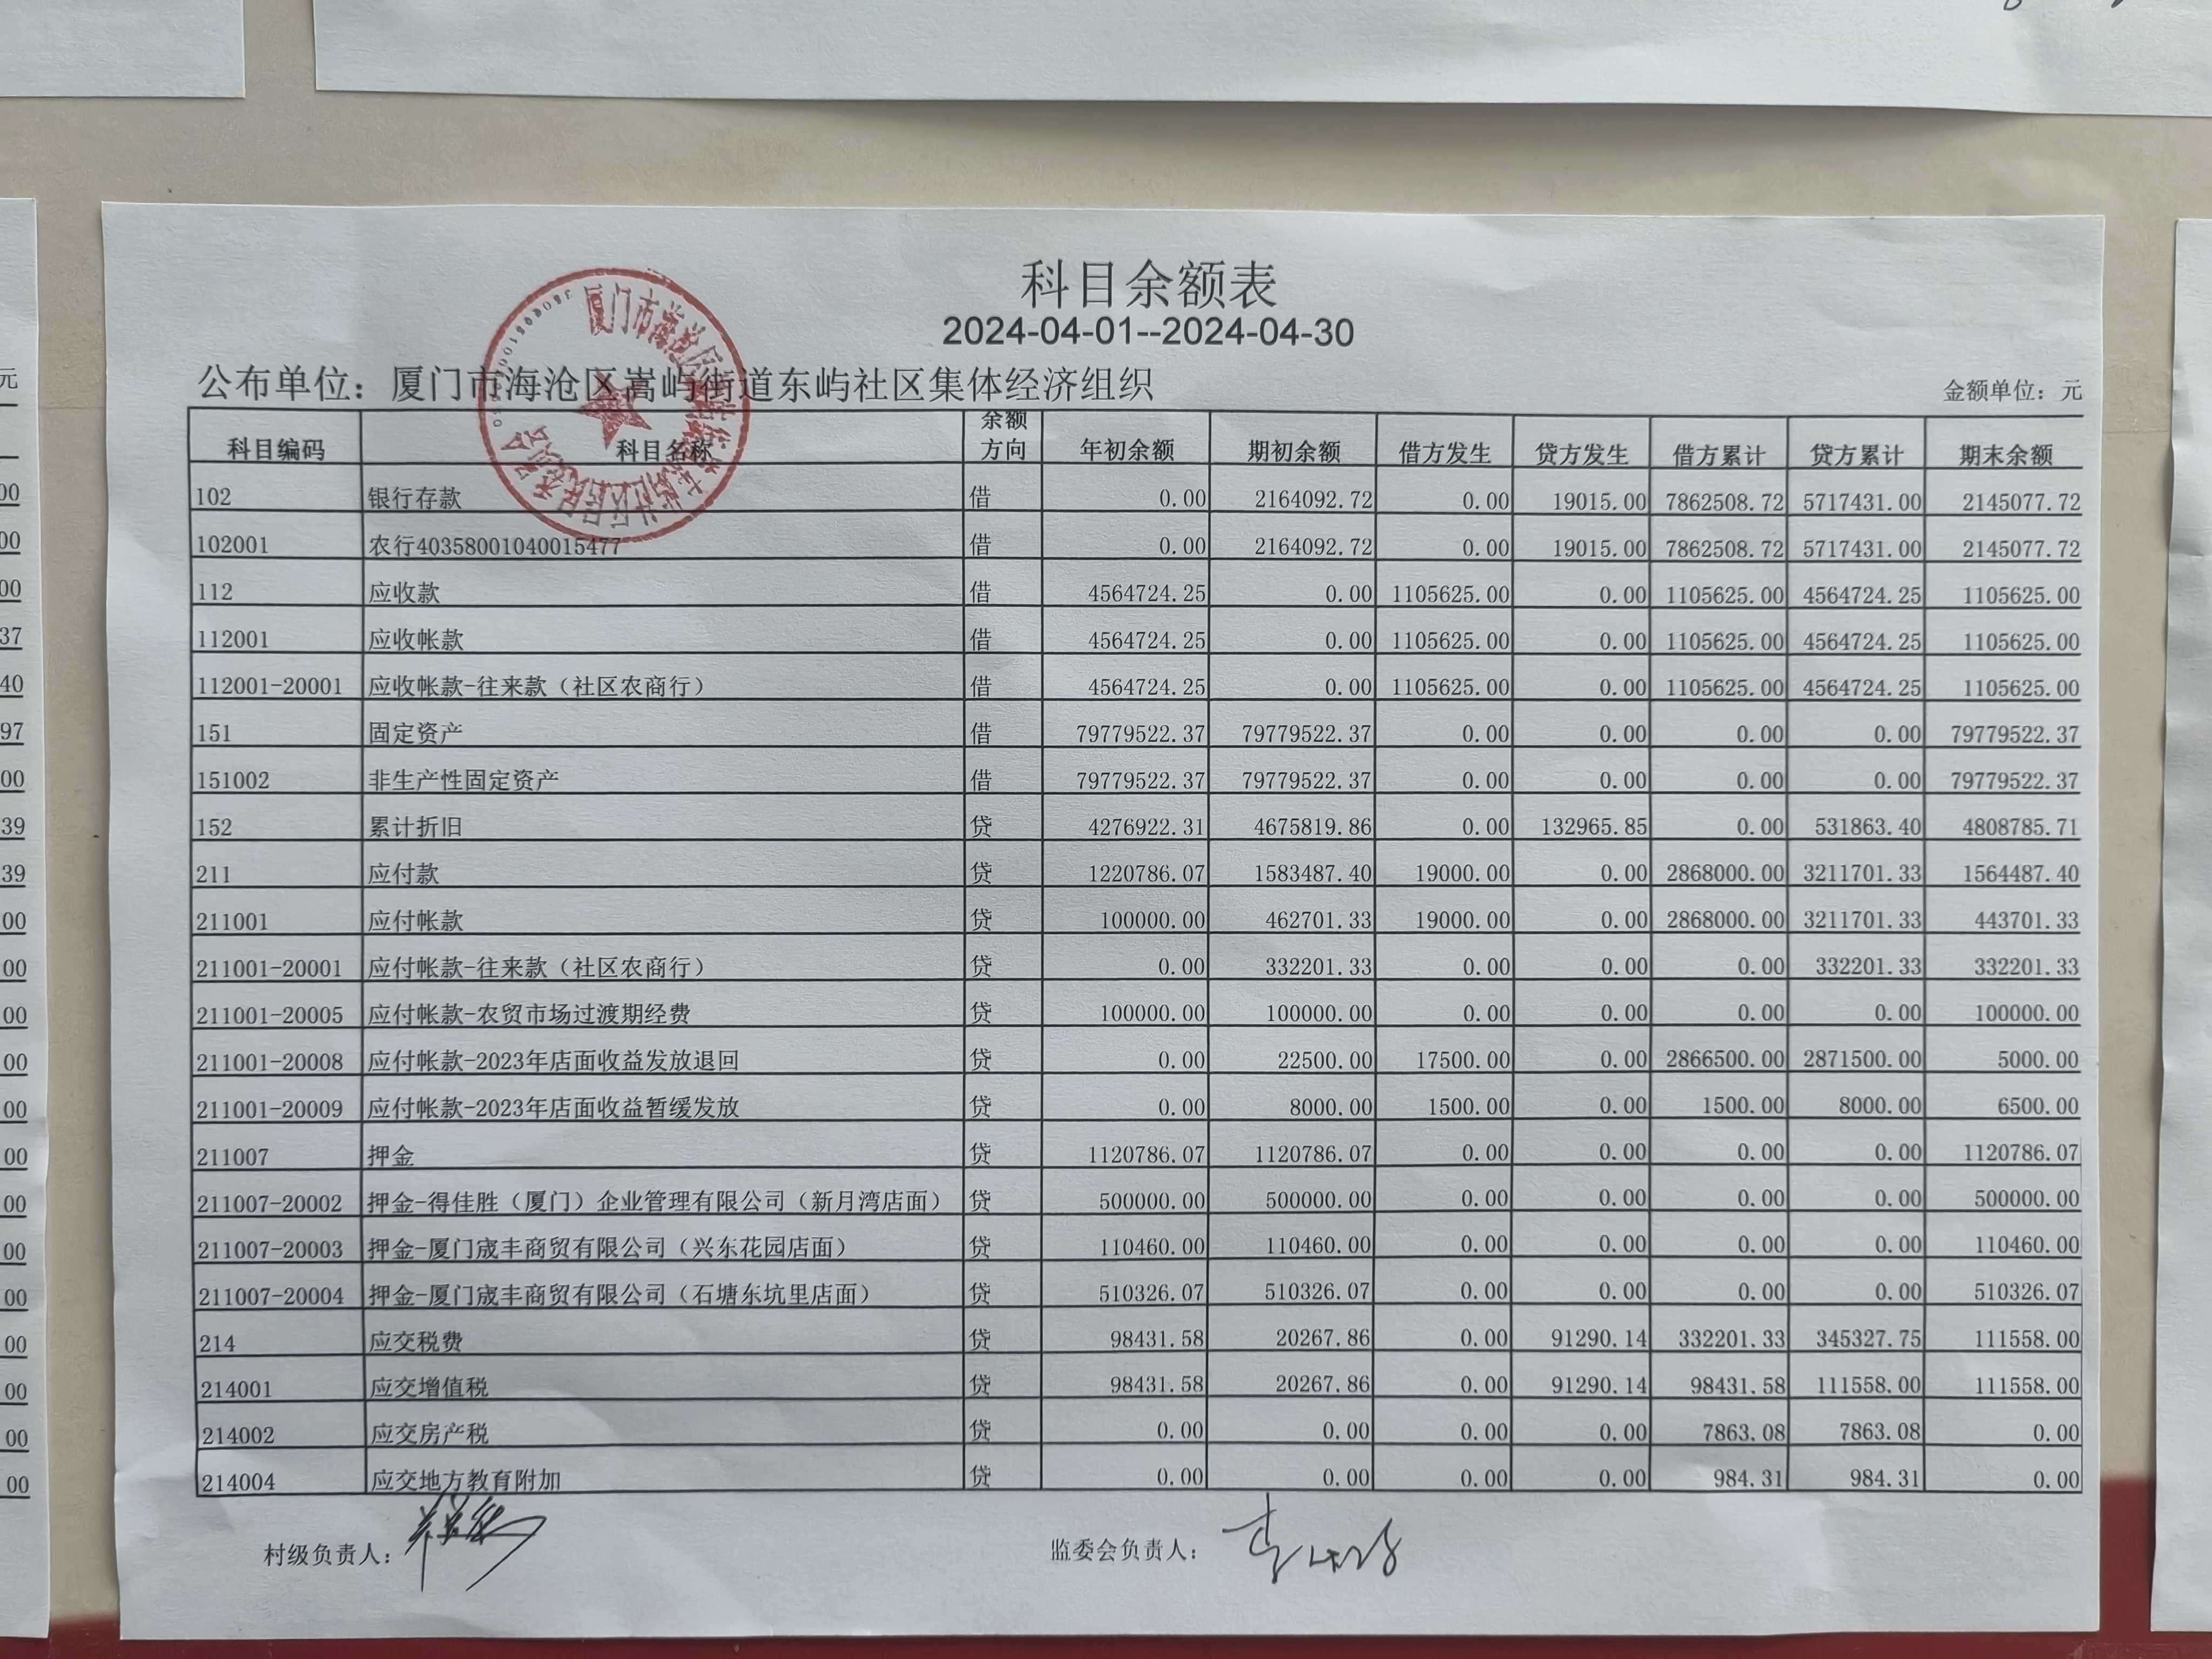 科目余额表
2024-04-01--2024-04-30
公布单位：厦门市海沧区嵩屿街道东屿社区集体经济组织 金额单位：元
科目编码 科目名称 余额方向 年初余额 期初余额 借方发生 贷方发生 借方累计 贷方累计 期末余额
102 银行存款 借 0.00 2164092.72 0.00 19015.00 7862508.72 5717431.00 2145077.72
102001 农行40358001040015477 借 0.00 2164092.72 0.00 19015.00 7862508.72 5717431.00 2145077.72
112 应收款 借 4564724.25 0.00 1105625.00 0.00 1105625.00 4564724.25 1105625.00
112001 应收帐款 借 4564724.25 0.00 1105625.00 0.00 1105625.00 4564724.25 1105625.00
112001-20001 应收帐款-往来款（社区农商行） 借 4564724.25 0.00 1105625.00 0.00 1105625.00 4564724.25 1105625.00
151 固定资产 借 79779522.37 79779522.37 0.00 0.00 0.00 0.00 79779522.37
151002 非生产性固定资产 借 79779522.37 79779522.37 0.00 0.00 0.00 0.00 79779522.37
152 累计折旧 贷 4276922.31 4675819.86 0.00 132965.85 0.00 531863.40 4808785.71
211 应付款 贷 1220786.07 1583487.40 19000.00 0.00 2868000.00 3211701.33 1564487.40
211001 应付帐款 贷 100000.00 462701.33 19000.00 0.00 2868000.00 3211701.33 443701.33
211001-20001 应付帐款-往来款（社区农商行） 贷 0.00 332201.33 0.00 0.00 0.00 332201.33 332201.33
211001-20005 应付帐款-农贸市场过渡期经费 贷 100000.00 100000.00 0.00 0.00 0.00 0.00 100000.00
211001-20008 应付帐款-2023年店面收益发放退回 贷 0.00 22500.00 17500.00 0.00 2866500.00 2871500.00 5000.00
211001-20009 应付帐款-2023年店面收益暂缓发放 贷 0.00 8000.00 1500.00 0.00 1500.00 8000.00 6500.00
211007 押金 贷 1120786.07 1120786.07 0.00 0.00 0.00 0.00 1120786.07
211007-20002 押金-得佳胜（厦门）企业管理有限公司（新月湾店面） 贷 500000.00 500000.00 0.00 0.00 0.00 0.00 500000.00
211007-20003 押金-厦门宬丰商贸有限公司（兴东花园店面） 贷 110460.00 110460.00 0.00 0.00 0.00 0.00 110460.00
211007-20004 押金-厦门宬丰商贸有限公司（石塘东坑里店面） 贷 510326.07 510326.07 0.00 0.00 0.00 0.00 510326.07
214 应交税费 贷 98431.58 20267.86 0.00 91290.14 332201.33 345327.75 111558.00
214001 应交增值税 贷 98431.58 20267.86 0.00 91290.14 98431.58 111558.00 111558.00
214002 应交房产税 贷 0.00 0.00 0.00 0.00 7863.08 7863.08 0.00
214004 应交地方教育附加 贷 0.00 0.00 0.00 0.00 984.31 984.31 0.00
村级负责人： 监委会负责人：